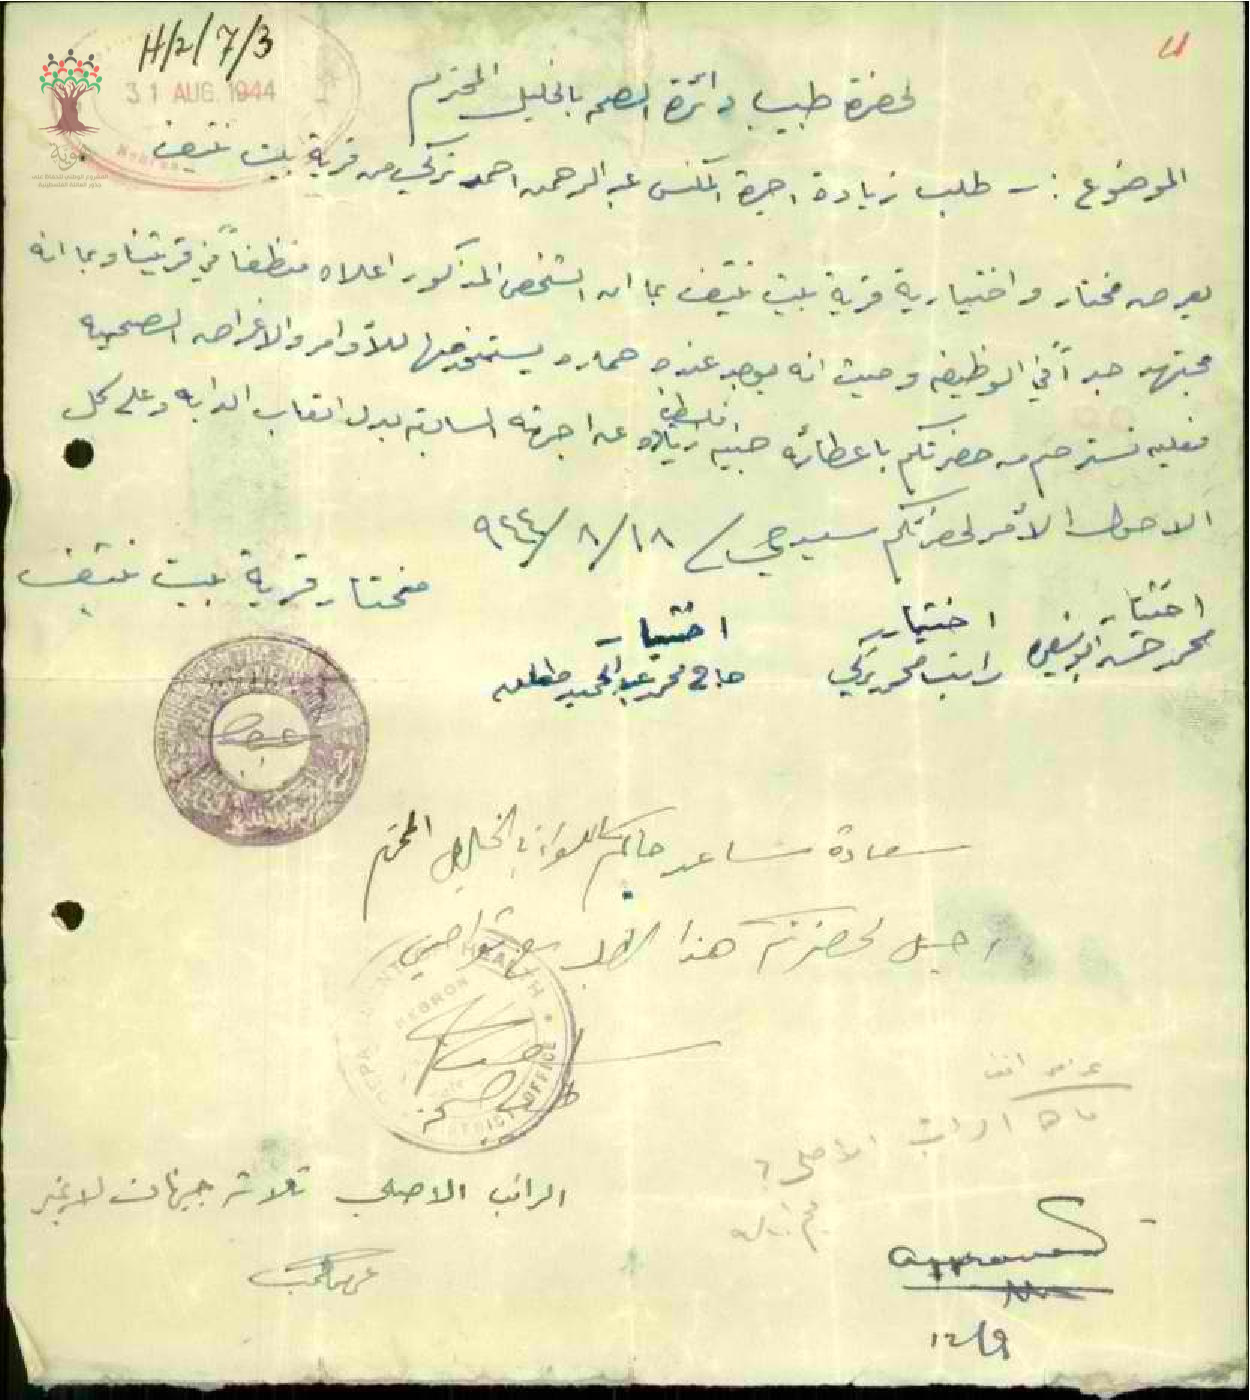 H/2/7/3
31 AUG. 1944
لحضرة طبيب دائرة الصحه بالخليل المحترم
الموضوع :- طلب زيادة اجرة المكنس عبد الرحمن احمد تركي من قرية بيت نتيف
يعرض مختار واختيارية قرية بيت نتيف بما ان الشخص المذكور اعلاه منظفاً في قريتنا وبما انه
مجتهد جداً في الوظيفه وحيث انه يوجد عنده حماره يستخدمها للأوامر والاغراض الصحيه
فعليه نسترحم من حضرتكم باعطائه جنيه فلسطيني زياده عن اجرته السابقه بدل اتعاب الدابه وعلى كل
الاحوال الأمر لحضرتكم سيدي / ١٨/٨/٩٤٤
مختار قرية بيت نتيف
اختيار اختيار اختيار
محمد حسن راتب محمد تركي حاج محمد عبد الحميد
سعادة مساعد حاكم اللواء بالخليل المحترم
احيل لحضرتكم هذا الطلب مع
DEPARTMENT OF HEALTH
HEBRON
DISTRICT OFFICE
ما هو الراتب الاصلي؟
الراتب الاصلي ثلاثة جنيهات لا غير
approved
12/9